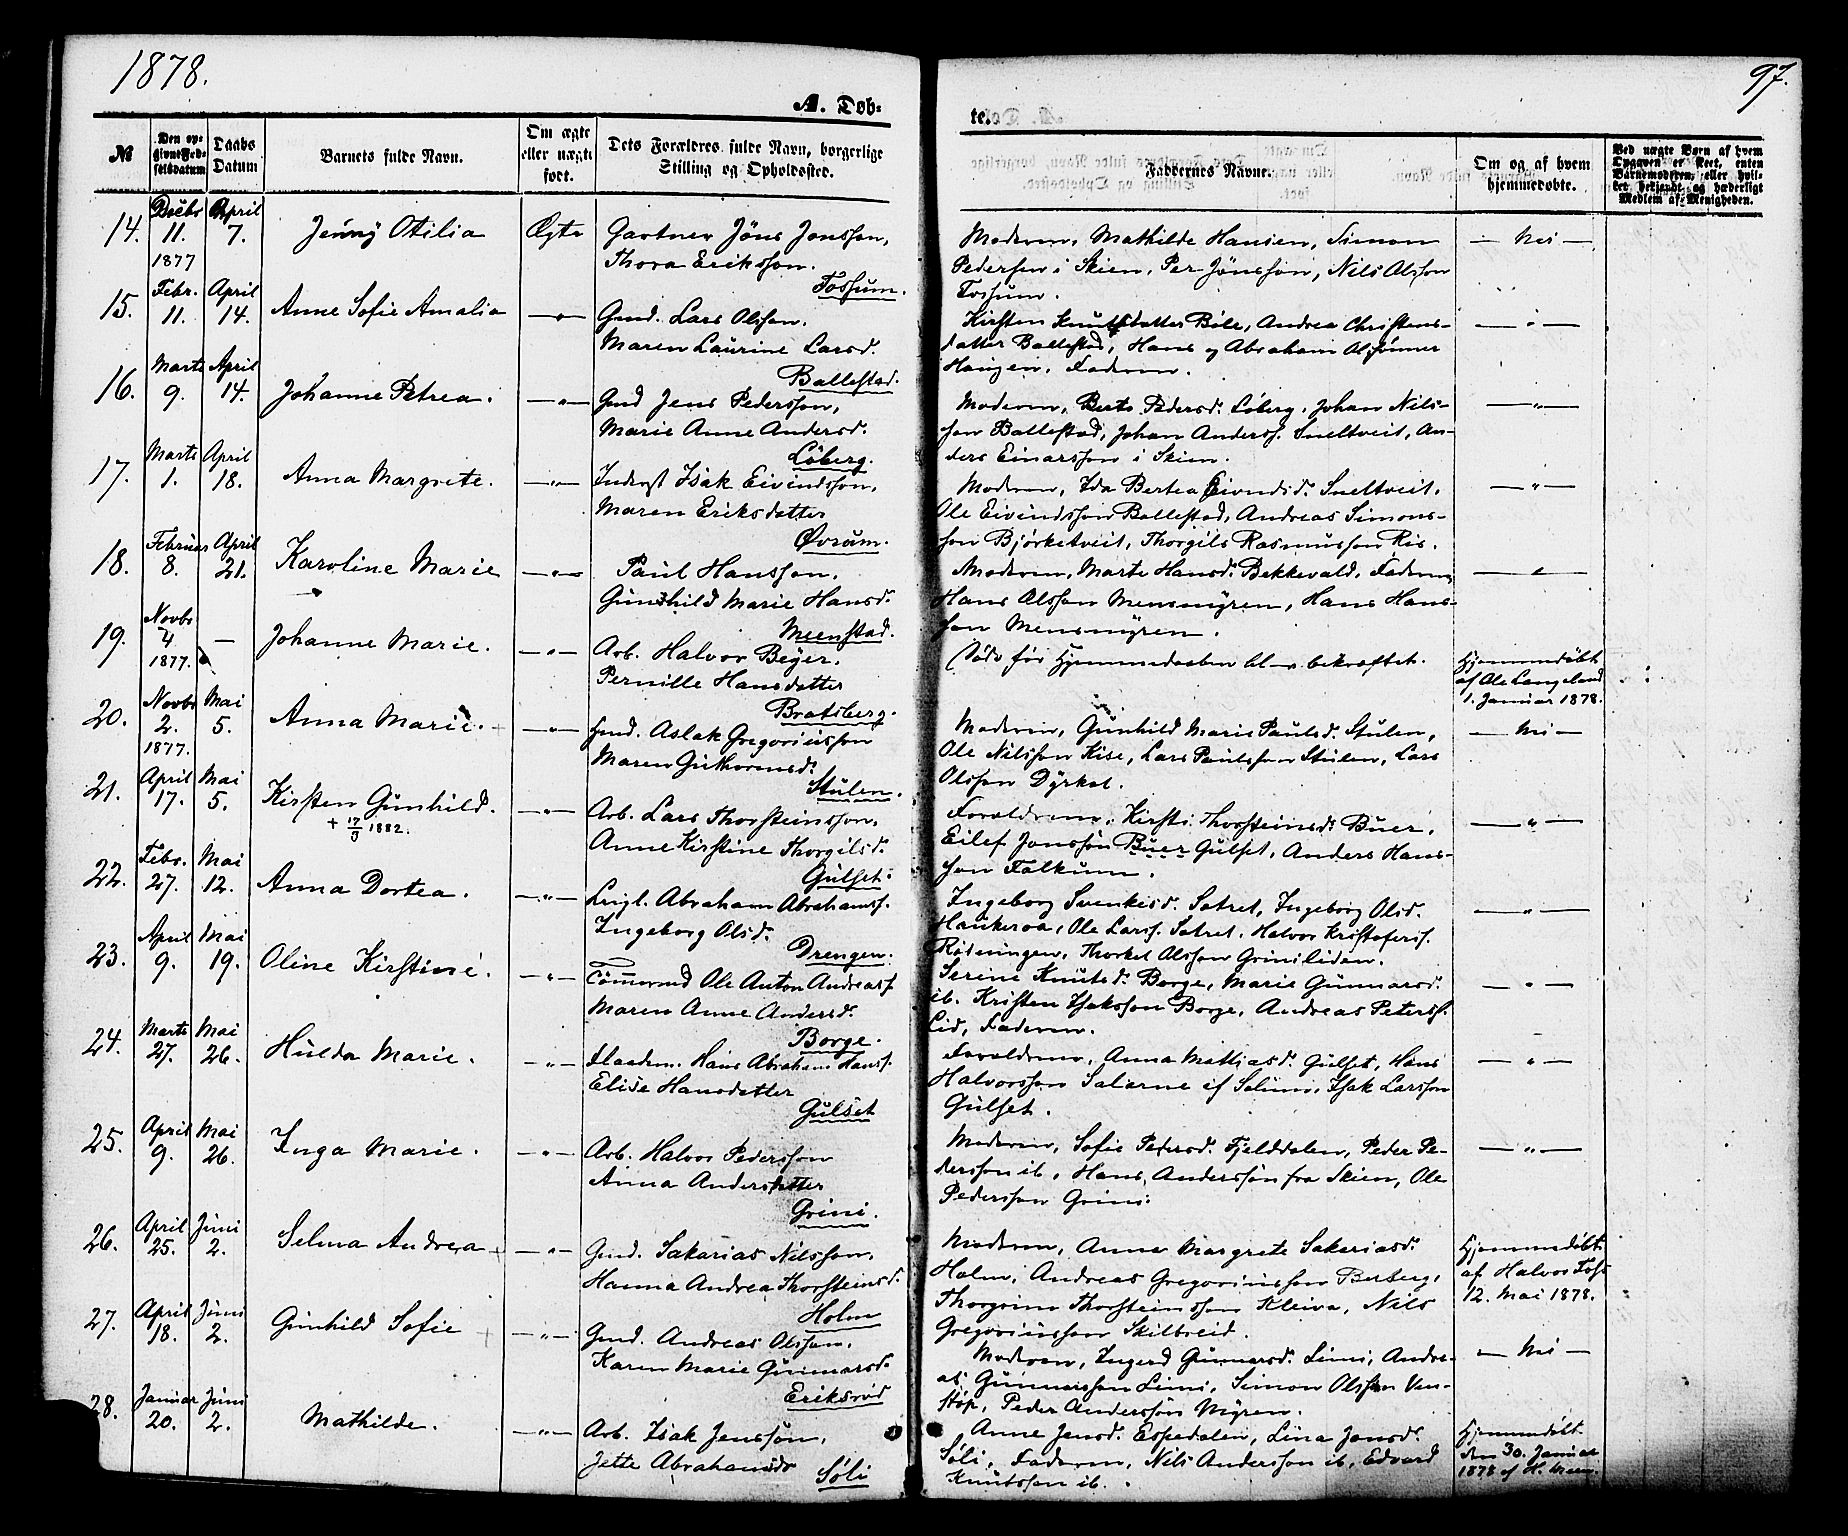 1878.
97.
A. Døb-
te.
№
Den op-
givne Fød-
selsdatum
Daabs
Datum
Barnets fulde Navn.
Om ægte
eller uægte
født.
Dets Forældres fulde Navn, borgerlige
Stilling og Opholdssted.
Faddernes Navne.
Om og af hvem
hjemmedøbte.
Ved uægte Børn af hvem
Opgaven er skeet, enten
Barnemoderen, eller hvil-
ket bekjendt og hæderligt
Medlem af Menigheden.
14. Decbr 11. 1877 April 7. Jenny Otilia Ægte
Gartner Jöns Jonsson,
Thora Eriksson.
Fossum.
Moderen, Mathilde Hansen, Simon
Pedersen i Skien, Per Jönsson, Nils Olsson
Fossum.
— Nei —
15. Febr. 11. April 14. Anne Sofie Amalia —"—
Gmd. Lars Olsson.
Maren Laurine Larsd.
Ballestad.
Kirsten Knutsdatter Böle, Andrea Christens-
datter Ballestad, Hans og Abraham Olssönner
Haugen, Faderen.
—"—
16. Marts 9. April 14. Johanne Petrea. —"—
Gmd Jens Pedersson,
Marie Anne Andersd.
Löberg.
Moderen, Berte Pedersd. Löberg, Johan Nils-
son Ballestad, Johan Anderss. Sneltveit, An-
ders Einarsson i Skien.
—"—
17. Marts 1. April 18. Anna Margrete. —"—
Inderst Isak Eivindsson,
Maren Eriksdatter
Øvrum.
Moderen, Ida Bertea Eivindsd. Sneltveit.
Ole Eivindsson Ballestad, Andreas Simons-
son Bjørketveit, Thorgils Rasmusson Ris.
—"—
18. Februar 8. April 21. Karoline Marie —"—
Paul Hansson.
Gunhild Marie Hansd.
Meenstad.
Moderen, Marte Hansd. Bekkevald. Faderen,
Hans Olsson Mensmyren, Hans Hans-
son Mensmyren.
—"—
19. Novbr 4 1877. — Johanne Marie. —"—
Arb. Halvor Beyer.
Pernille Hansdatter
Bratsberg.
Døde før Hjemmedaaben blev bekræftet.
Hjemmedøbt
af Ole Langeland
1. Januar 1878.
20. Novbr 2. 1877. Mai 5. Anna Marie. —"—
Gmd. Aslak Gregoriusson
Maren Guthormsd.
Stulen.
Moderen, Gunhild Marie Paulsd. Stulen,
Ole Nilsson Kise, Lars Paulsson Stulen, Lars
Olsson Dyrkol.
— Nei —
21. April 17. Mai 5. Kirsten Gunhild. —"—
+ 17/3 1882.
Arb. Lars Thorsteinsson,
Anne Kirstine Thorgilsd.
Gulset.
Forældrene, Kirsti Thorsteinsd. Buer,
Eilef Jonssön Buer Gulset, Anders Hans-
son Falkum.
—"—
22. Febr. 27. Mai 12. Anna Dortea. —"—
Leigl. Abraham Abrahams.
Ingeborg Olsd.
Drengen.
Ingeborg Svenkesd. Satret, Ingeborg Olsd.
Haukeroa, Ole Larss. Satret, Halvor Kristoferss.
Rödningen, Thorkel Olsson Grinilidan.
—"—
23. April 9. Mai 19. Oline Kirstine. —"—
Tömmermd Ole Anton Andreass.
Maren Anne Andersd.
Borge.
Serine Knutsd. Borge, Marie Gunnarsd.
ib. Kristen Isaksson Borge, Andreas Peterss.
Lid, Faderen.
—"—
24. Marts 27. Mai 26. Hulda Marie. —"—
Flaadem. Hans Abraham Hanss.
Elise Hansdatter
Gulset
Forældrene, Anna Mattiasd. Gulset, Hans
Halvorsson Salerne af Selum, Isak Larsson
Gulset.
—"—
25. April 9. Mai 26. Inga Marie. —"—
Arb. Halvor Pedersson
Anna Andersdatter
Grini.
Moderen, Sofie Pedersd. Fjelddalen, Peder Pe-
dersson ib. Hans Andersson fra Skien, Ole
Pedersson Grini.
—"—
26. April 25. Juni 2. Selma Andrea —"—
Gmd. Sakarias Nilsson,
Hanna Andrea Thorsteinsd.
Holm
Moderen, Anne Margrete Sakariasd.
Holm, Andreas Gregoriusson Berberg,
Thorgrim Thorsteinsson Kleiva, Nils
Gregoriusson Skilbreid.
Hjemmedøbt
af Halvor Foss
12. Mai 1878.
27. April 18. Juni 2. Gunhild Sofie —"—
Gmd. Andreas Olsson,
Karen Marie Gunnarsd.
Eriksröd
Moderen, Ingerd Gunnarsd. Limi, Andre-
as Gunnarsson Limi, Simon Olsson Ven-
stöp, Peder Andersson Myren.
— Nei —
28. Januar 20. Juni 2. Mathilde. —"—
Arb. Isak Jensson,
Jette Abrahamsdr
Söli
Anne Jensd. Espedalen, Lina Jonsd.
Söli, Faderen, Nils Andersson ib, Edvard
Knutsson ib.
Hjemmedøbt
den 30. Januar
1878 af H.